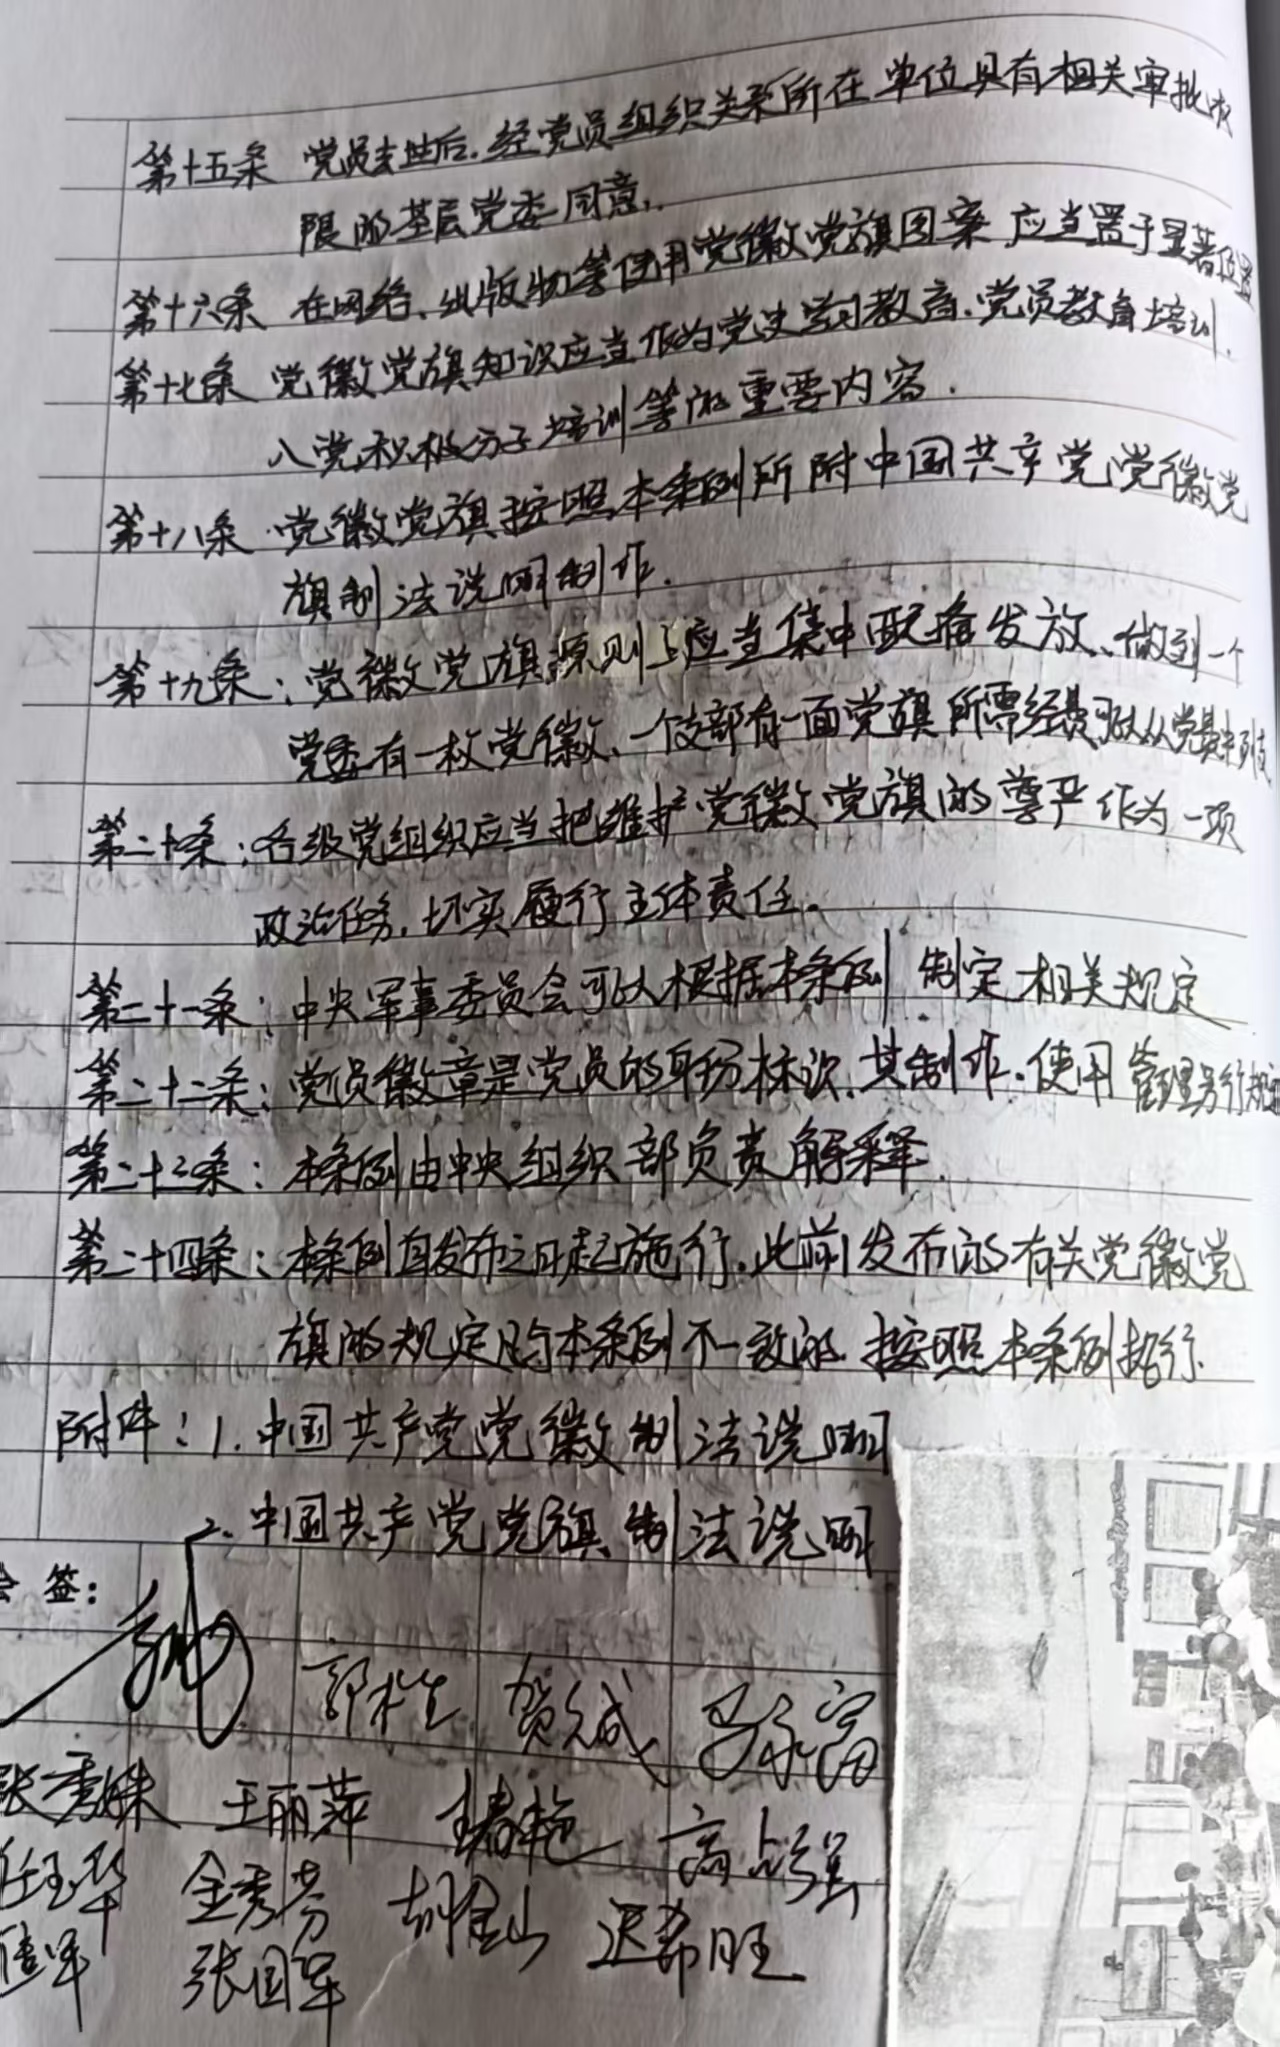 第十五条 党员去世后.经党员组织关系所在单位具有相关审批权
限的基层党委同意.
第十六条 在网络、出版物等使用党徽党旗图案 应当置于显著位置
第十七条 党徽党旗知识应当作为党史学习教育、党员教育培训.
入党积极分子培训等的重要内容.
第十八条 党徽党旗按照本条例所附中国共产党党徽党
旗制法说明制作.
第十九条:党徽党旗原则上应当集中配备发放、做到一个
党委有一枚党徽、一个支部有一面党旗 所需经费可以从党费中列支
第二十条:各级党组织应当把维护党徽党旗的尊严作为一项
政治任务.切实履行主体责任。
第二十一条:中央军事委员会可以根据本条例 制定相关规定
第二十二条:党员徽章是党员的身份标识.其制作.使用管理另行规定
第二十三条:本条例由中央组织部负责解释.
第二十四条:本条例自发布之日起施行.此前发布的有关党徽党
旗的规定与本条例不一致的 按照本条例执行.
附件:1.中国共产党党徽制法说明
2.中国共产党党旗制法说明
会签:
张秀妹 王丽萍 高占强
任玉华 金秀芬 胡金山 迟希旺
张国军